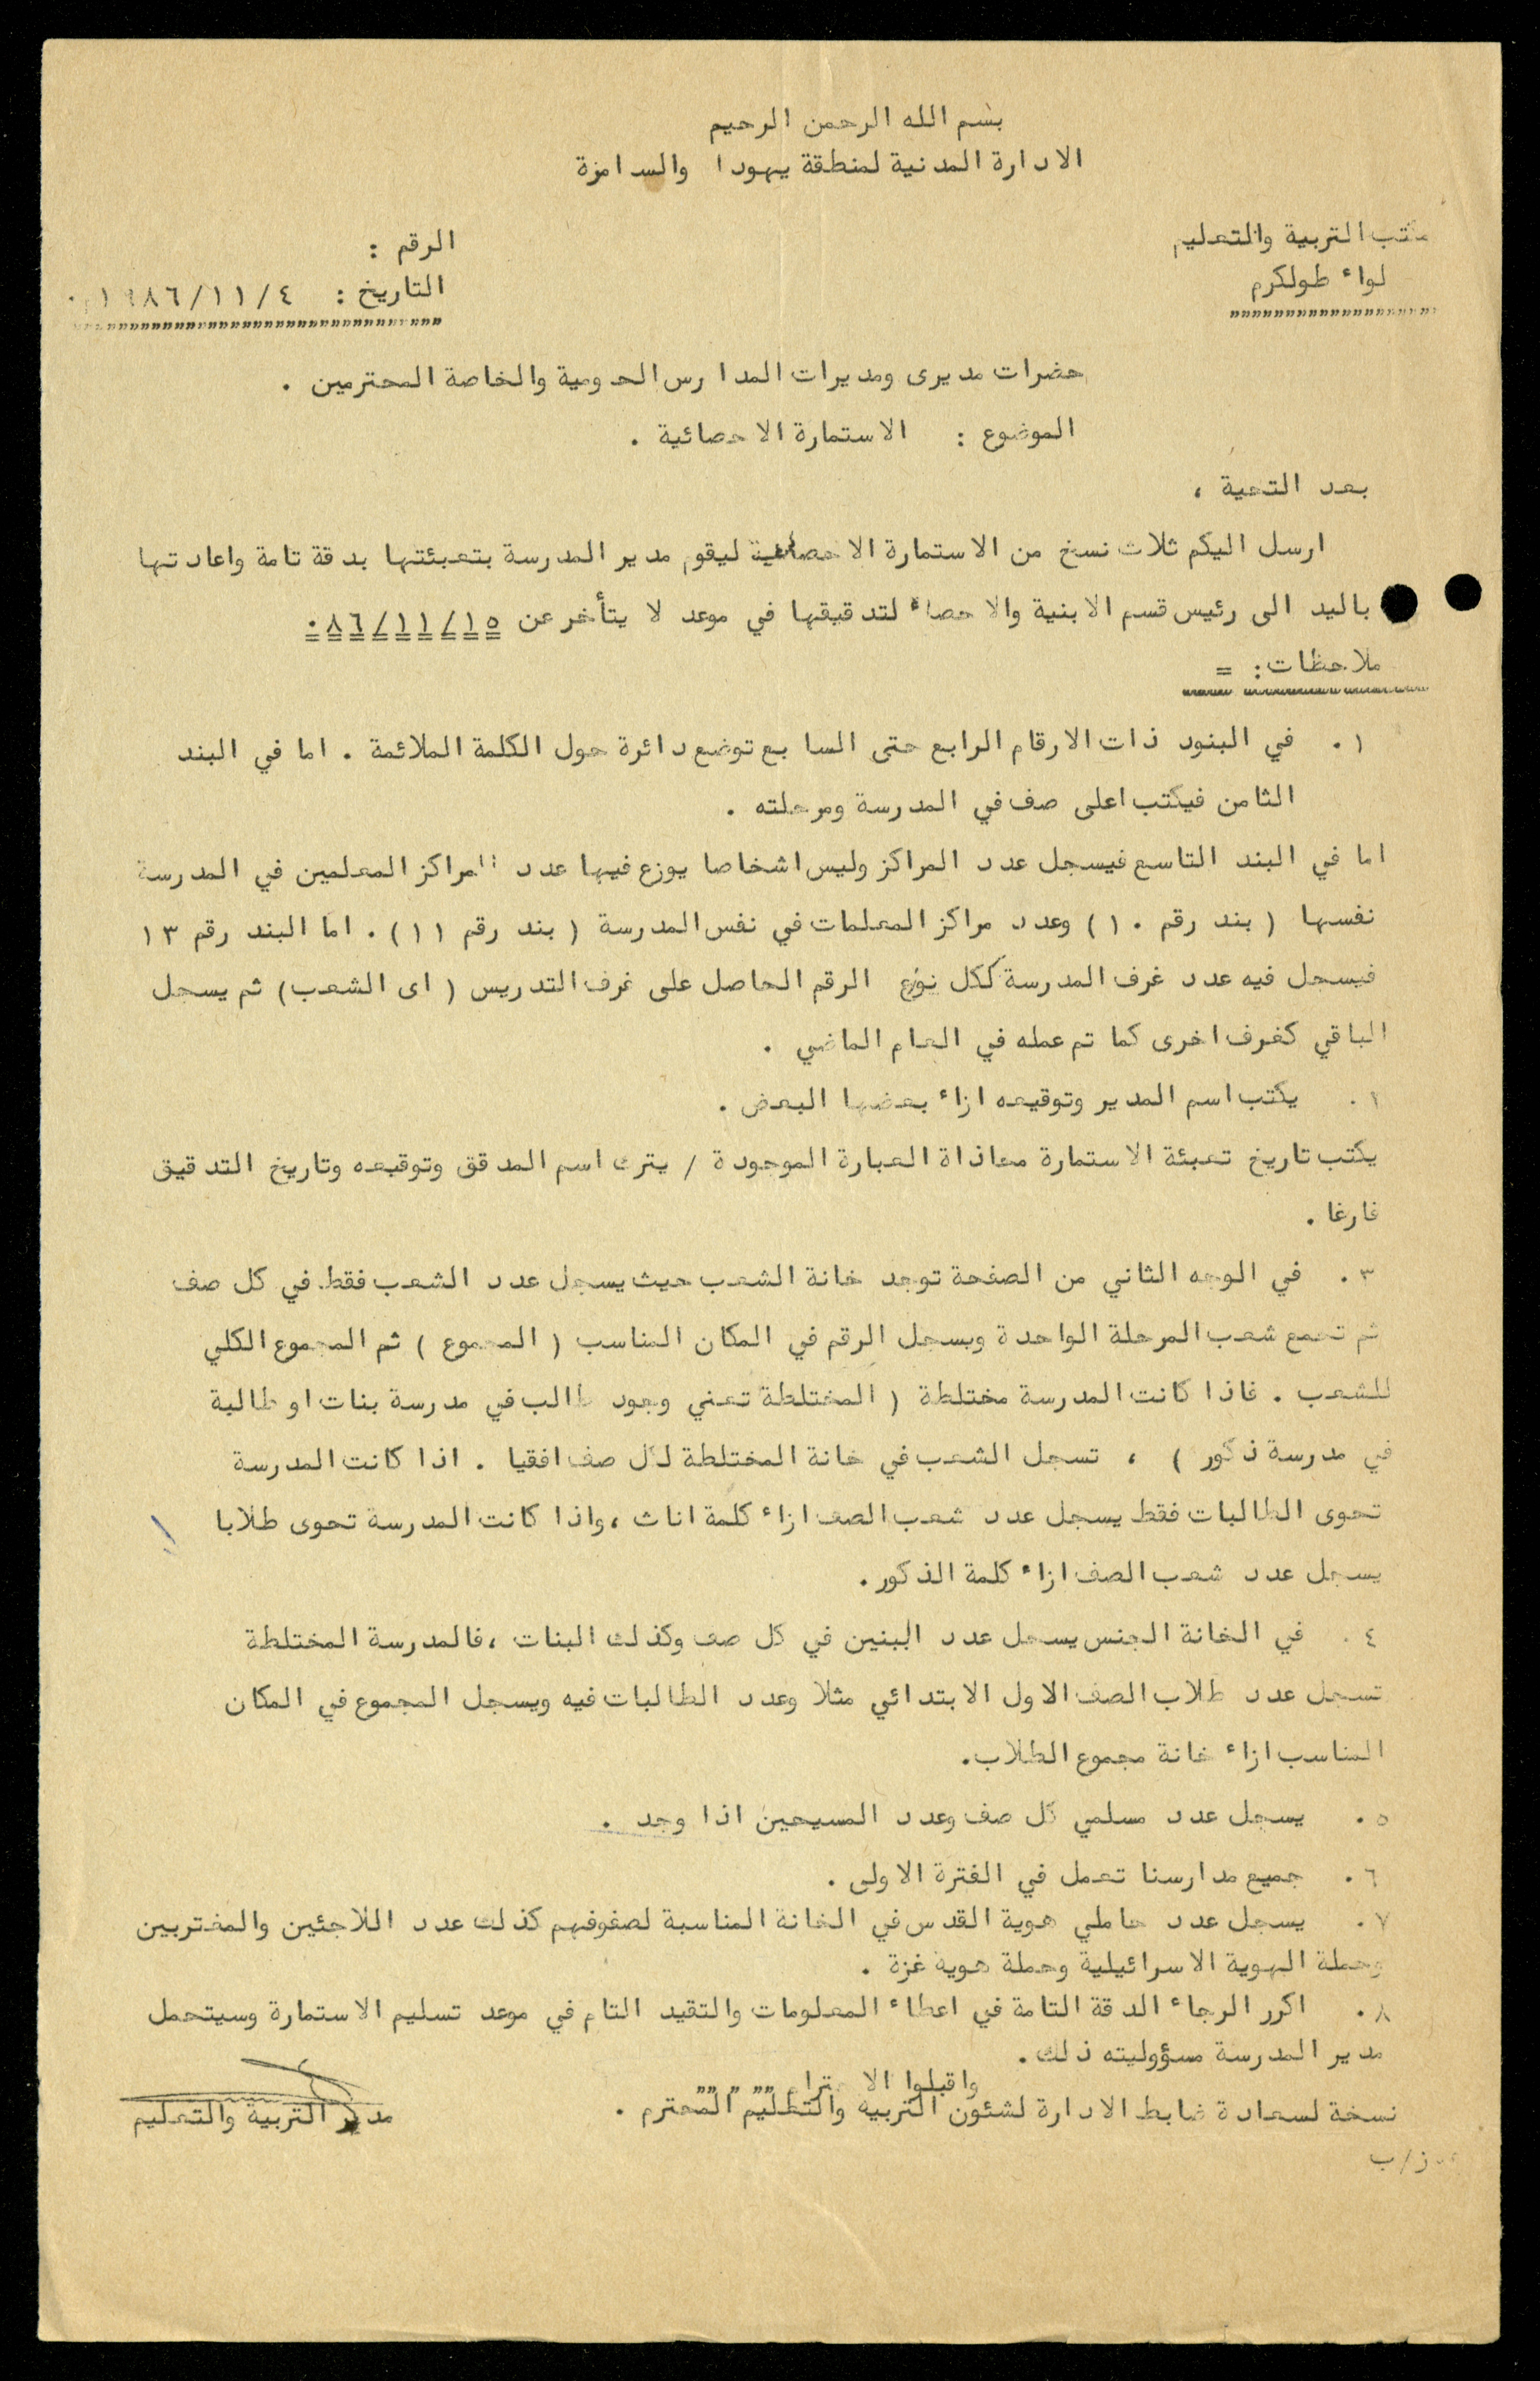 بسم الله الرحمن الرحيم
الادارة المدنية لمنطقة يهودا والسامرة
مكتب التربية والتعليم
لواء طولكرم
الرقم :
التاريخ : ٤/١١/١٩٨٦ .
حضرات مديرى ومديرات المدارس الحكومية والخاصة المحترمين .
الموضوع : الاستمارة الاحصائية .
بعد التحية ،
ارسل اليكم ثلاث نسخ من الاستمارة الاحصائية ليقوم مدير المدرسة بتعبئتها بدقة تامة واعادتها
باليد الى رئيس قسم الابنية والاحصاء لتدقيقها في موعد لا يتأخر عن ١٥/١١/٨٦.
ملاحظات : =
١. في البنود ذات الارقام الرابع حتى السابع توضع دائرة حول الكلمة الملائمة . اما في البند
الثامن فيكتب اعلى صف في المدرسة ومرحلته .
اما في البند التاسع فيسجل عدد المراكز وليس اشخاصا يوزع فيها عدد المراكز المعلمين في المدرسة
نفسها ( بند رقم ١٠ ) وعدد مراكز المعلمات في نفس المدرسة ( بند رقم ١١ ) . اما البند رقم ١٣
فيسجل فيه عدد غرف المدرسة ككل نوزع الرقم الحاصل على غرف التدريس ( اى الشعب ) ثم يسجل
الباقي كغرف اخرى كما تم عمله في العام الماضي .
. يكتب اسم المدير وتوقيعه ازاء بعضها البعض .
يكتب تاريخ تعبئة الاستمارة معاذاة العبارة الموجودة / يترك اسم المدقق وتوقيعه وتاريخ التدقيق
فارغا .
٣. في الوجه الثاني من الصفحة توجد خانة الشعب حيث يسجل عدد الشعب فقط في كل صف
ثم تجمع شعب المرحلة الواحدة ويسجل الرقم في المكان المناسب ( المجموع ) ثم المجموع الكلي
للشعب . فاذا كانت المدرسة مختلطة ( المختلطة تعني وجود طالب في مدرسة بنات او طالبة
في مدرسة ذكور ) ، تسجل الشعب في خانة المختلطة لكل صف افقيا . اذا كانت المدرسة
تحوى الطالبات فقط يسجل عدد شعب الصف ازاء كلمة اناث ، واذا كانت المدرسة تحوى طلابا
يسجل عدد شعب الصف ازاء كلمة الذكور .
٤. في الخانة الجنس يسجل عدد البنين في كل صف وكذلك البنات ، فالمدرسة المختلطة
تسجل عدد طلاب الصف الاول الابتدائي مثلا وعدد الطالبات فيه ويسجل المجموع في المكان
المناسب ازاء خانة مجموع الطلاب .
٥. يسجل عدد مسلمي كل صف وعدد المسيحين اذا وجد .
٦. جميع مدارسنا تعمل في الفترة الاولى .
٧. يسجل عدد حاملي هوية القدس في الخانة المناسبة لصفوفهم كذلك عدد اللاجئين والمغتربين
وحملة الهوية الاسرائيلية وحملة هوية غزة .
٨. اكرر الرجاء الدقة التامة في اعطاء المعلومات والتقيد التام في موعد تسليم الاستمارة وسيتحمل
مدير المدرسة مسؤوليته ذلك .
واقبلوا الاحترام
نسخة لسعادة ضابط الادارة لشئون التربيه والتعليم المحترم .
مدير التربية والتعليم
ز/ب